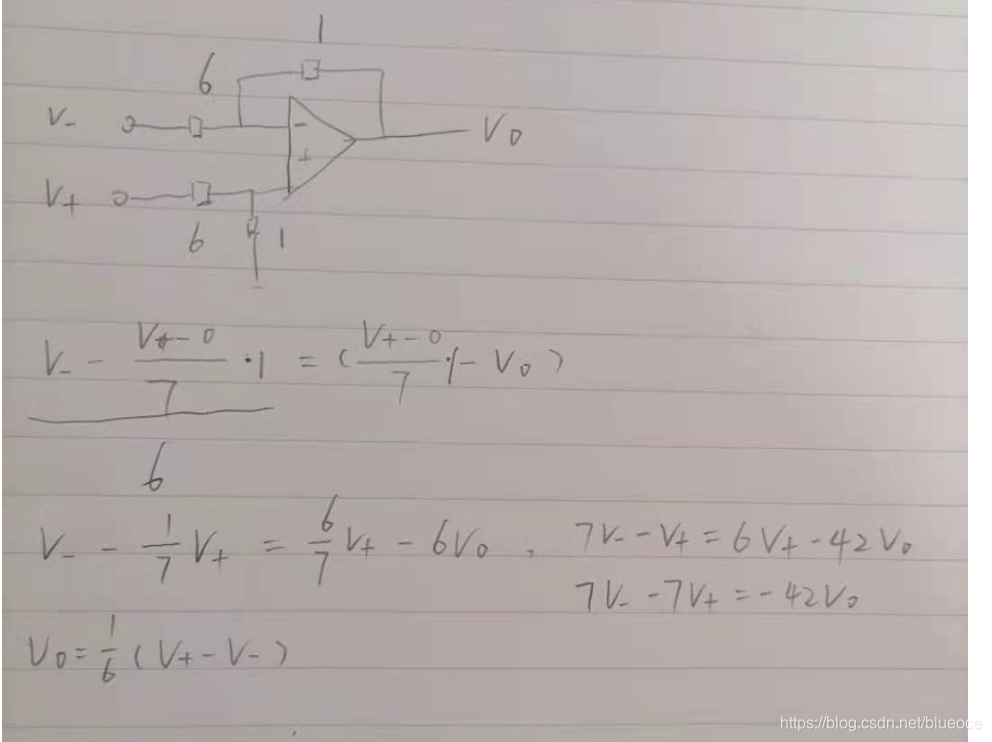 1
6
V-
-
V0
+
V+
6 1
V- - (V+ - 0)/7 · 1 = ( (V+ - 0)/7 · 1 - V0 )
6
V- - 1/7 V+ = 6/7 V+ - 6V0 , 7V- - V+ = 6V+ - 42V0
7V- - 7V+ = -42V0
V0 = 1/6 ( V+ - V- )
https://blog.csdn.net/blueoce